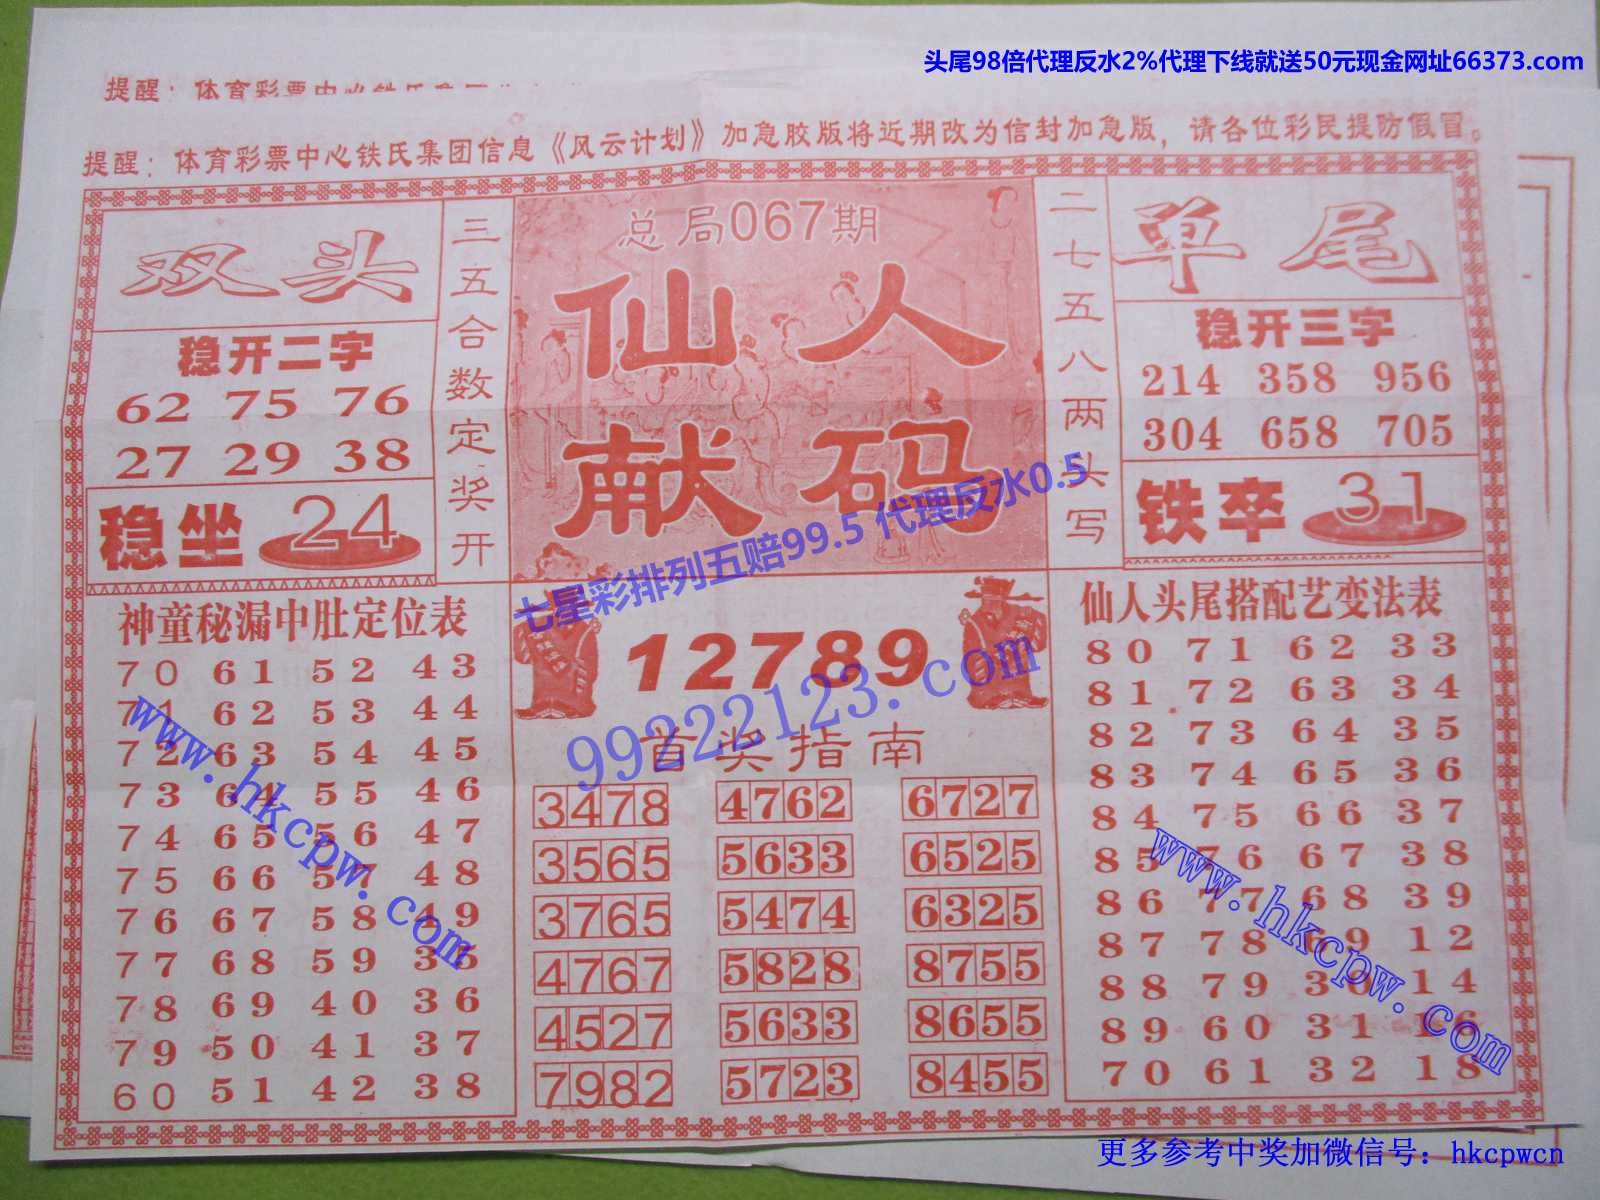 头尾98倍代理反水2%代理下线就送50元现金网址66373.com
提醒：体育彩票中心铁氏集团信息《风云计划》加急胶版将近期改为信封加急版，请各位彩民提防假冒。
双头
稳开二字
62 75 76
27 29 38
稳坐 24
三五合数定奖开
总局067期
仙人
献码
二七五八两头写
单尾
稳开三字
214 358 956
304 658 705
铁卒 31
七星彩排列五赔99.5 代理反水0.5
神童秘漏中肚定位表
70 61 52 43
71 62 53 44
72 63 54 45
73 64 55 46
74 65 56 47
75 66 57 48
76 67 58 49
77 68 59 35
78 69 40 36
79 50 41 37
60 51 42 38
www.hkcpw.com
12789
99222123.com
首奖指南
3478 4762 6727
3565 5633 6525
3765 5474 6325
4767 5828 8755
4527 5633 8655
7982 5723 8455
仙人头尾搭配艺变法表
80 71 62 33
81 72 63 34
82 73 64 35
83 74 65 36
84 75 66 37
85 76 67 38
86 77 68 39
87 78 69 12
88 79 30 14
89 60 31 16
70 61 32 18
www.hkcpw.com
更多参考中奖加微信号：hkcpwcn